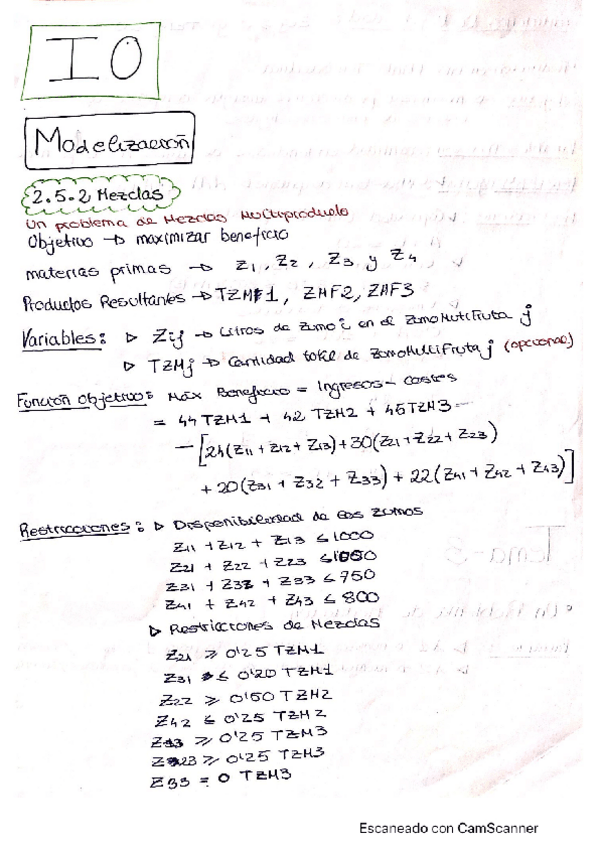 IO
Modelización
2.5.2 Mezclas
Un problema de Mezclas Multiproducto
Objetivo → maximizar beneficio
materias primas → Z1, Z2, Z3 y Z4
Productos Resultantes → TZM1, ZMF2, ZMF3
Variables: ▷ Zij → Litros de zumo i en el ZumoMultiFruta j
▷ TZMj → Cantidad total de ZumoMultiFruta j (opcional)
Función Objetivo: Máx Beneficio = Ingresos - Costes
= 44 TZM1 + 42 TZM2 + 45 TZM3 -
- [24(Z11 + Z12 + Z13) + 30(Z21 + Z22 + Z23)
+ 20(Z31 + Z32 + Z33) + 22(Z41 + Z42 + Z43)]
Restricciones: ▷ Disponibilidad de los zumos
Z11 + Z12 + Z13 ≤ 1000
Z21 + Z22 + Z23 ≤
Z31 + Z32 + Z33 ≤ 750
Z41 + Z42 + Z43 ≤ 800
▷ Restricciones de Mezclas
Z21 ≥ 0'25 TZM1
Z31 ≤ 0'20 TZM1
Z22 ≥ 0'50 TZM2
Z42 ≤ 0'25 TZM2
≥ 0'25 TZM3
Z23 ≥ 0'25 TZM3
Z33 = 0 TZM3
Escaneado con CamScanner